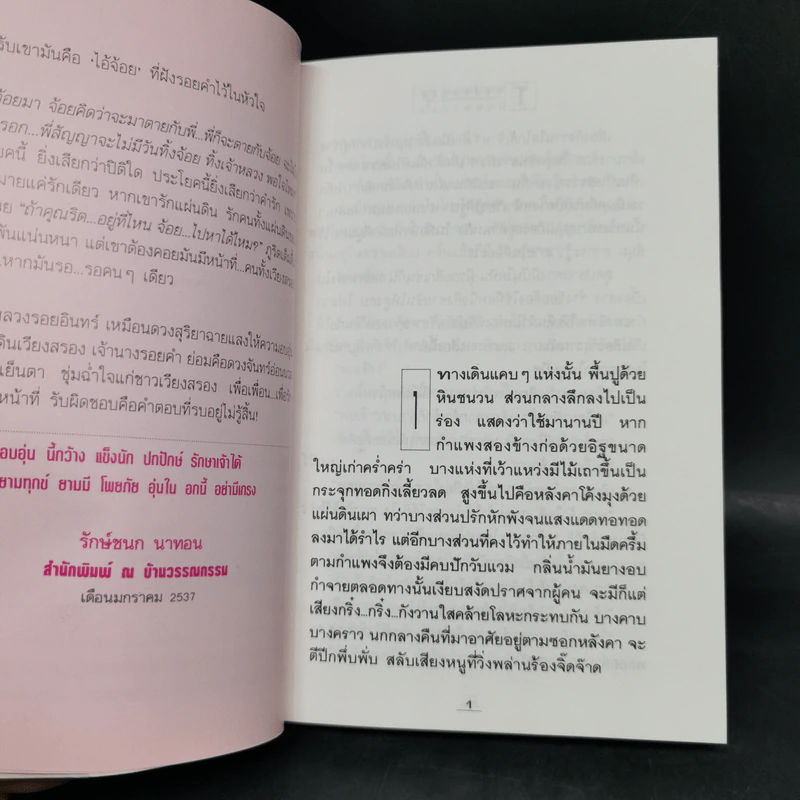 รับเขามันคือ 'ไอ้จ้อย' ที่ฝังรอยคำไว้ในหัวใจ
จ้อยมา จ้อยคิดว่าจะมาตายกับพี่...พี่ก็จะตายกับจ้อย
รอก...พี่สัญญาจะไม่มีวันทิ้งจ้อย ทิ้งเจ้าหลวง
ยคนี้ ยิ่งเสียกว่าปิติใด ประโยคนี้ยิ่งเสียกว่าคำรัก
มายแค่รักเดียว หากเขารักแผ่นดิน รักคนทั้งแผ่นดิน
ย "ถ้าคุณริต...อยู่ที่ไหน จ้อย...ไปหาได้ไหม?"
พันแน่นหนา แต่เขาต้องคอยมันมีหน้าที่...คนทั้งเวียงสรอง
หากมันรอ...รอคนๆ เดียว
หลวงรอยอินทร์ เหมือนดวงสุริยาฉายแสงให้ความอบอุ่น
ดินเวียงสรอง เจ้านางรอยคำ ย่อมคือดวงจันทร์
เย็นตา ชุ่มฉ่ำใจแก่ชาวเวียงสรอง เพื่อเพื่อน...
หน้าที่ รับผิดชอบคือคำตอบที่รบอยู่ไม่รู้สิ้น!
อบอุ่น นี้กว้าง แข็งนัก ปกปักษ์ รักษาเจ้าได้
ยามทุกข์ ยามมี โพยภัย อุ่นใน อกนี้ อย่ามีเกรง
รักษ์ชนก นาทอน
สำนักพิมพ์ ณ บ้านวรรณกรรม
เดือนมกราคม 2537
1
ทางเดินแคบๆ แห่งนั้น พื้นปูด้วย
หินชนวน ส่วนกลางลึกลงไปเป็น
ร่อง แสดงว่าใช้มานานปี หาก
กำแพงสองข้างก่อด้วยอิฐขนาด
ใหญ่เก่าคร่ำคร่า บางแห่งที่เว้าแหว่งมีไม้เถาขึ้นเป็น
กระจุกทอดกิ่งเลี้ยวลด สูงขึ้นไปคือหลังคาโค้งมุงด้วย
แผ่นดินเผา ทว่าบางส่วนปรักหักพังจนแสงแดดทอทอด
ลงมาได้รำไร แต่อีกบางส่วนที่คงไว้ทำให้ภายในมืดครึ้ม
ตามกำแพงจึงต้องมีคบปักวับแวม กลิ่นน้ำมันยางอบ
กำจายตลอดทางนั้นเงียบสงัดปราศจากผู้คน จะมีก็แต่
เสียงกริ๋ง...กริ๋ง...กังวานใสคล้ายโลหะกระทบกัน บางคาบ
บางคราว นกกลางคืนที่มาอาศัยอยู่ตามซอกหลังคา จะ
ตีปีกพึ่บพั่บ สลับเสียงหนูที่วิ่งพล่านร้องจิ๊ดจ๊าด
1